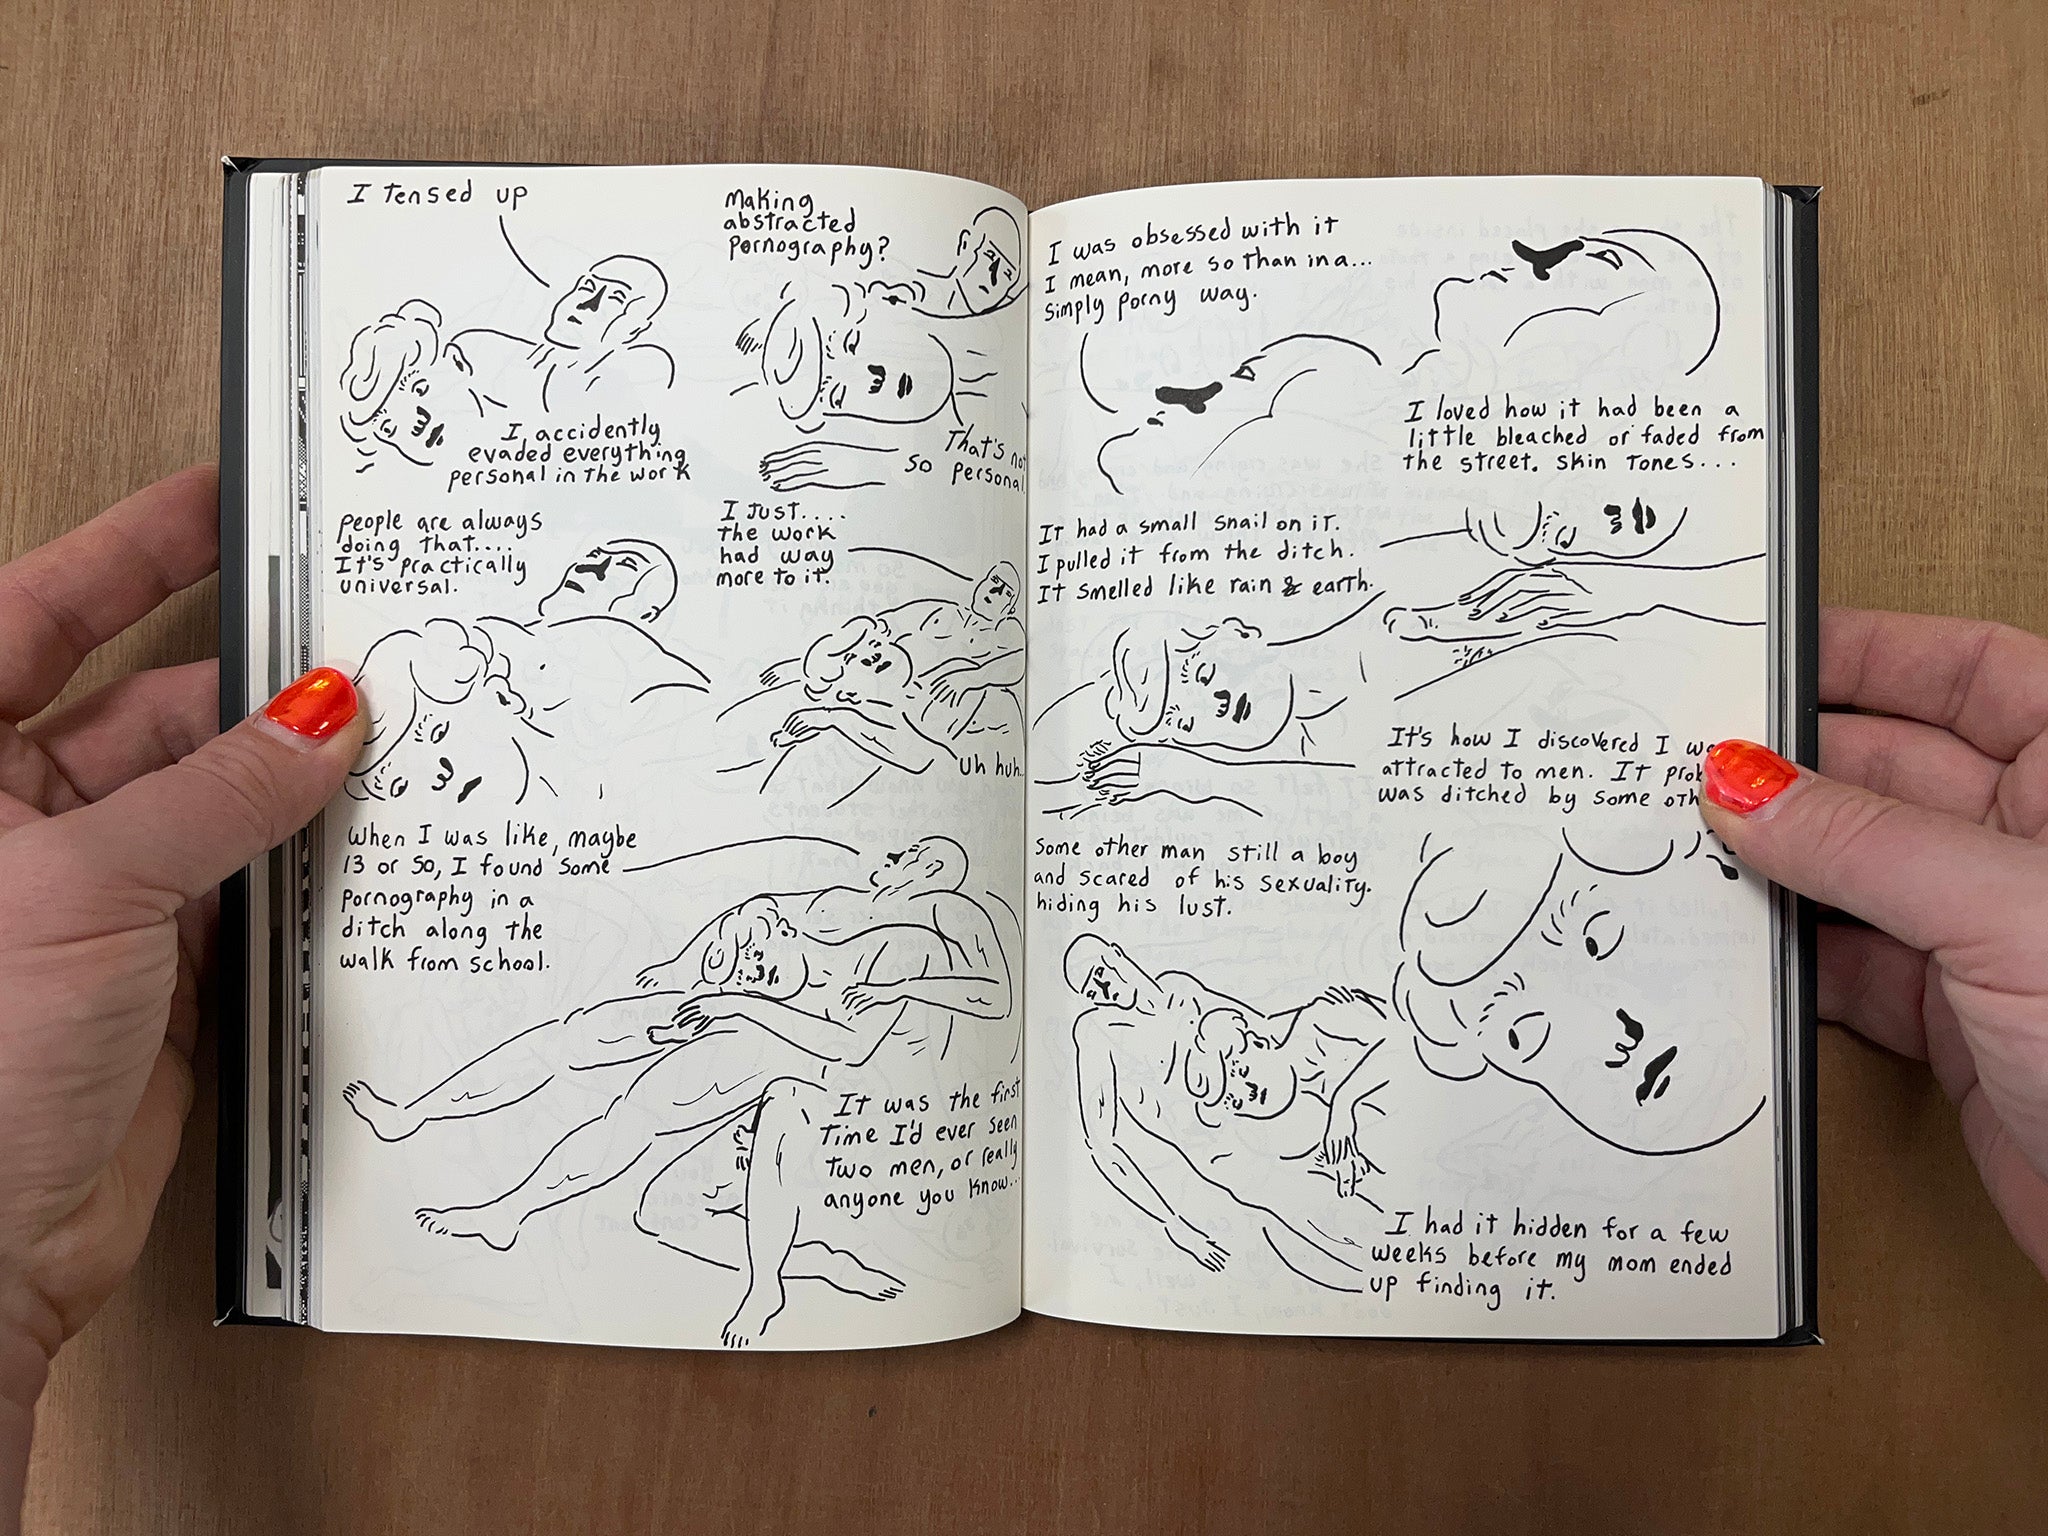 I tensed up
I accidently
evaded everything
personal in the work
Making
abstracted
pornography?
That's not
so personal
People are always
doing that....
It's practically
universal.
I Just....
the work
had way
more to it.
uh huh..
When I was like, maybe
13 or so, I found some
pornography in a
ditch along the
walk from school.
It was the first
time I'd ever seen
two men, or really
anyone you know...
I was obsessed with it
I mean, more so than in a...
simply porny way.
I loved how it had been a
little bleached or faded from
the street. Skin tones...
It had a small snail on it.
I pulled it from the ditch.
It smelled like rain & earth.
It's how I discovered I
attracted to men. It
was ditched by some
Some other man still a boy
and scared of his sexuality.
hiding his lust.
I had it hidden for a few
weeks before my mom ended
up finding it.